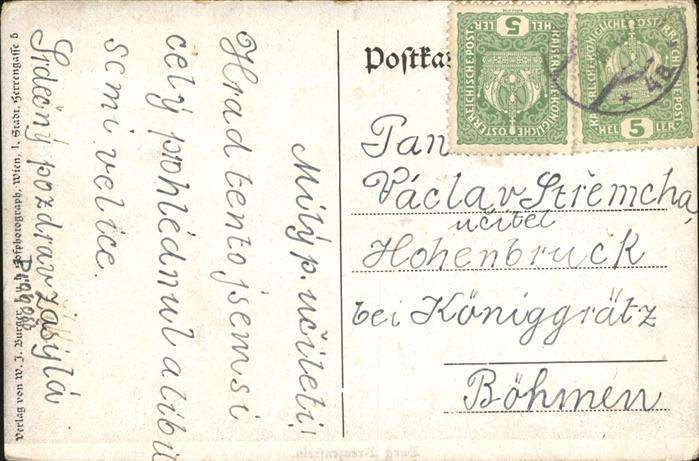 Milý p. učiteli!
Hrad tento jsem si
celý prohlédnul a líbil
se mi velice.
Srdečný pozdrav zasýlá
Verlag von W. J. Burger, k. u. k. Hofphotograph, Wien, I. Stadt, Herrengasse 5
Postka
KAISERLICHE KÖNIGLICHE ÖSTERREICHISCHE POST
5 HELLER
KAISERLICHE KÖNIGLICHE ÖSTERREICHISCHE POST
HEL 5 LER
Pan
Václav Střemcha,
učitel
Hohenbruck
bei Königgrätz
Böhmen
Burg Kreuzenstein.